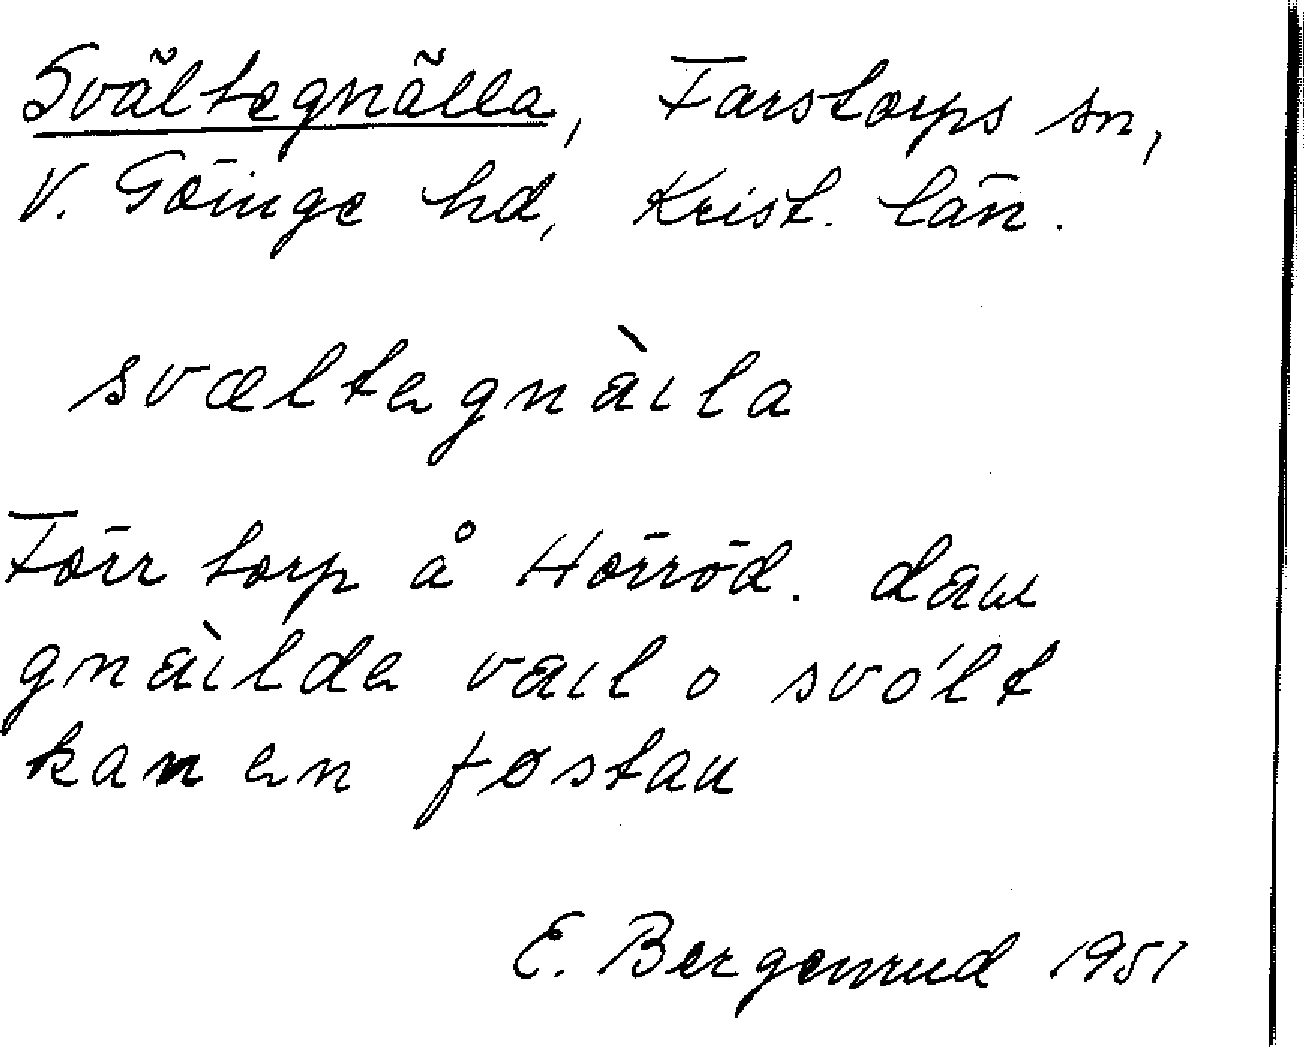 Svältegnälla, Farstorps sn,
V. Göinge hd, Krist. län.
svæltegnàıla
Förr torp å Hörröd. daw
gnàılde vaıl o svólt
kan en føstau
E. Bergenrud 1951